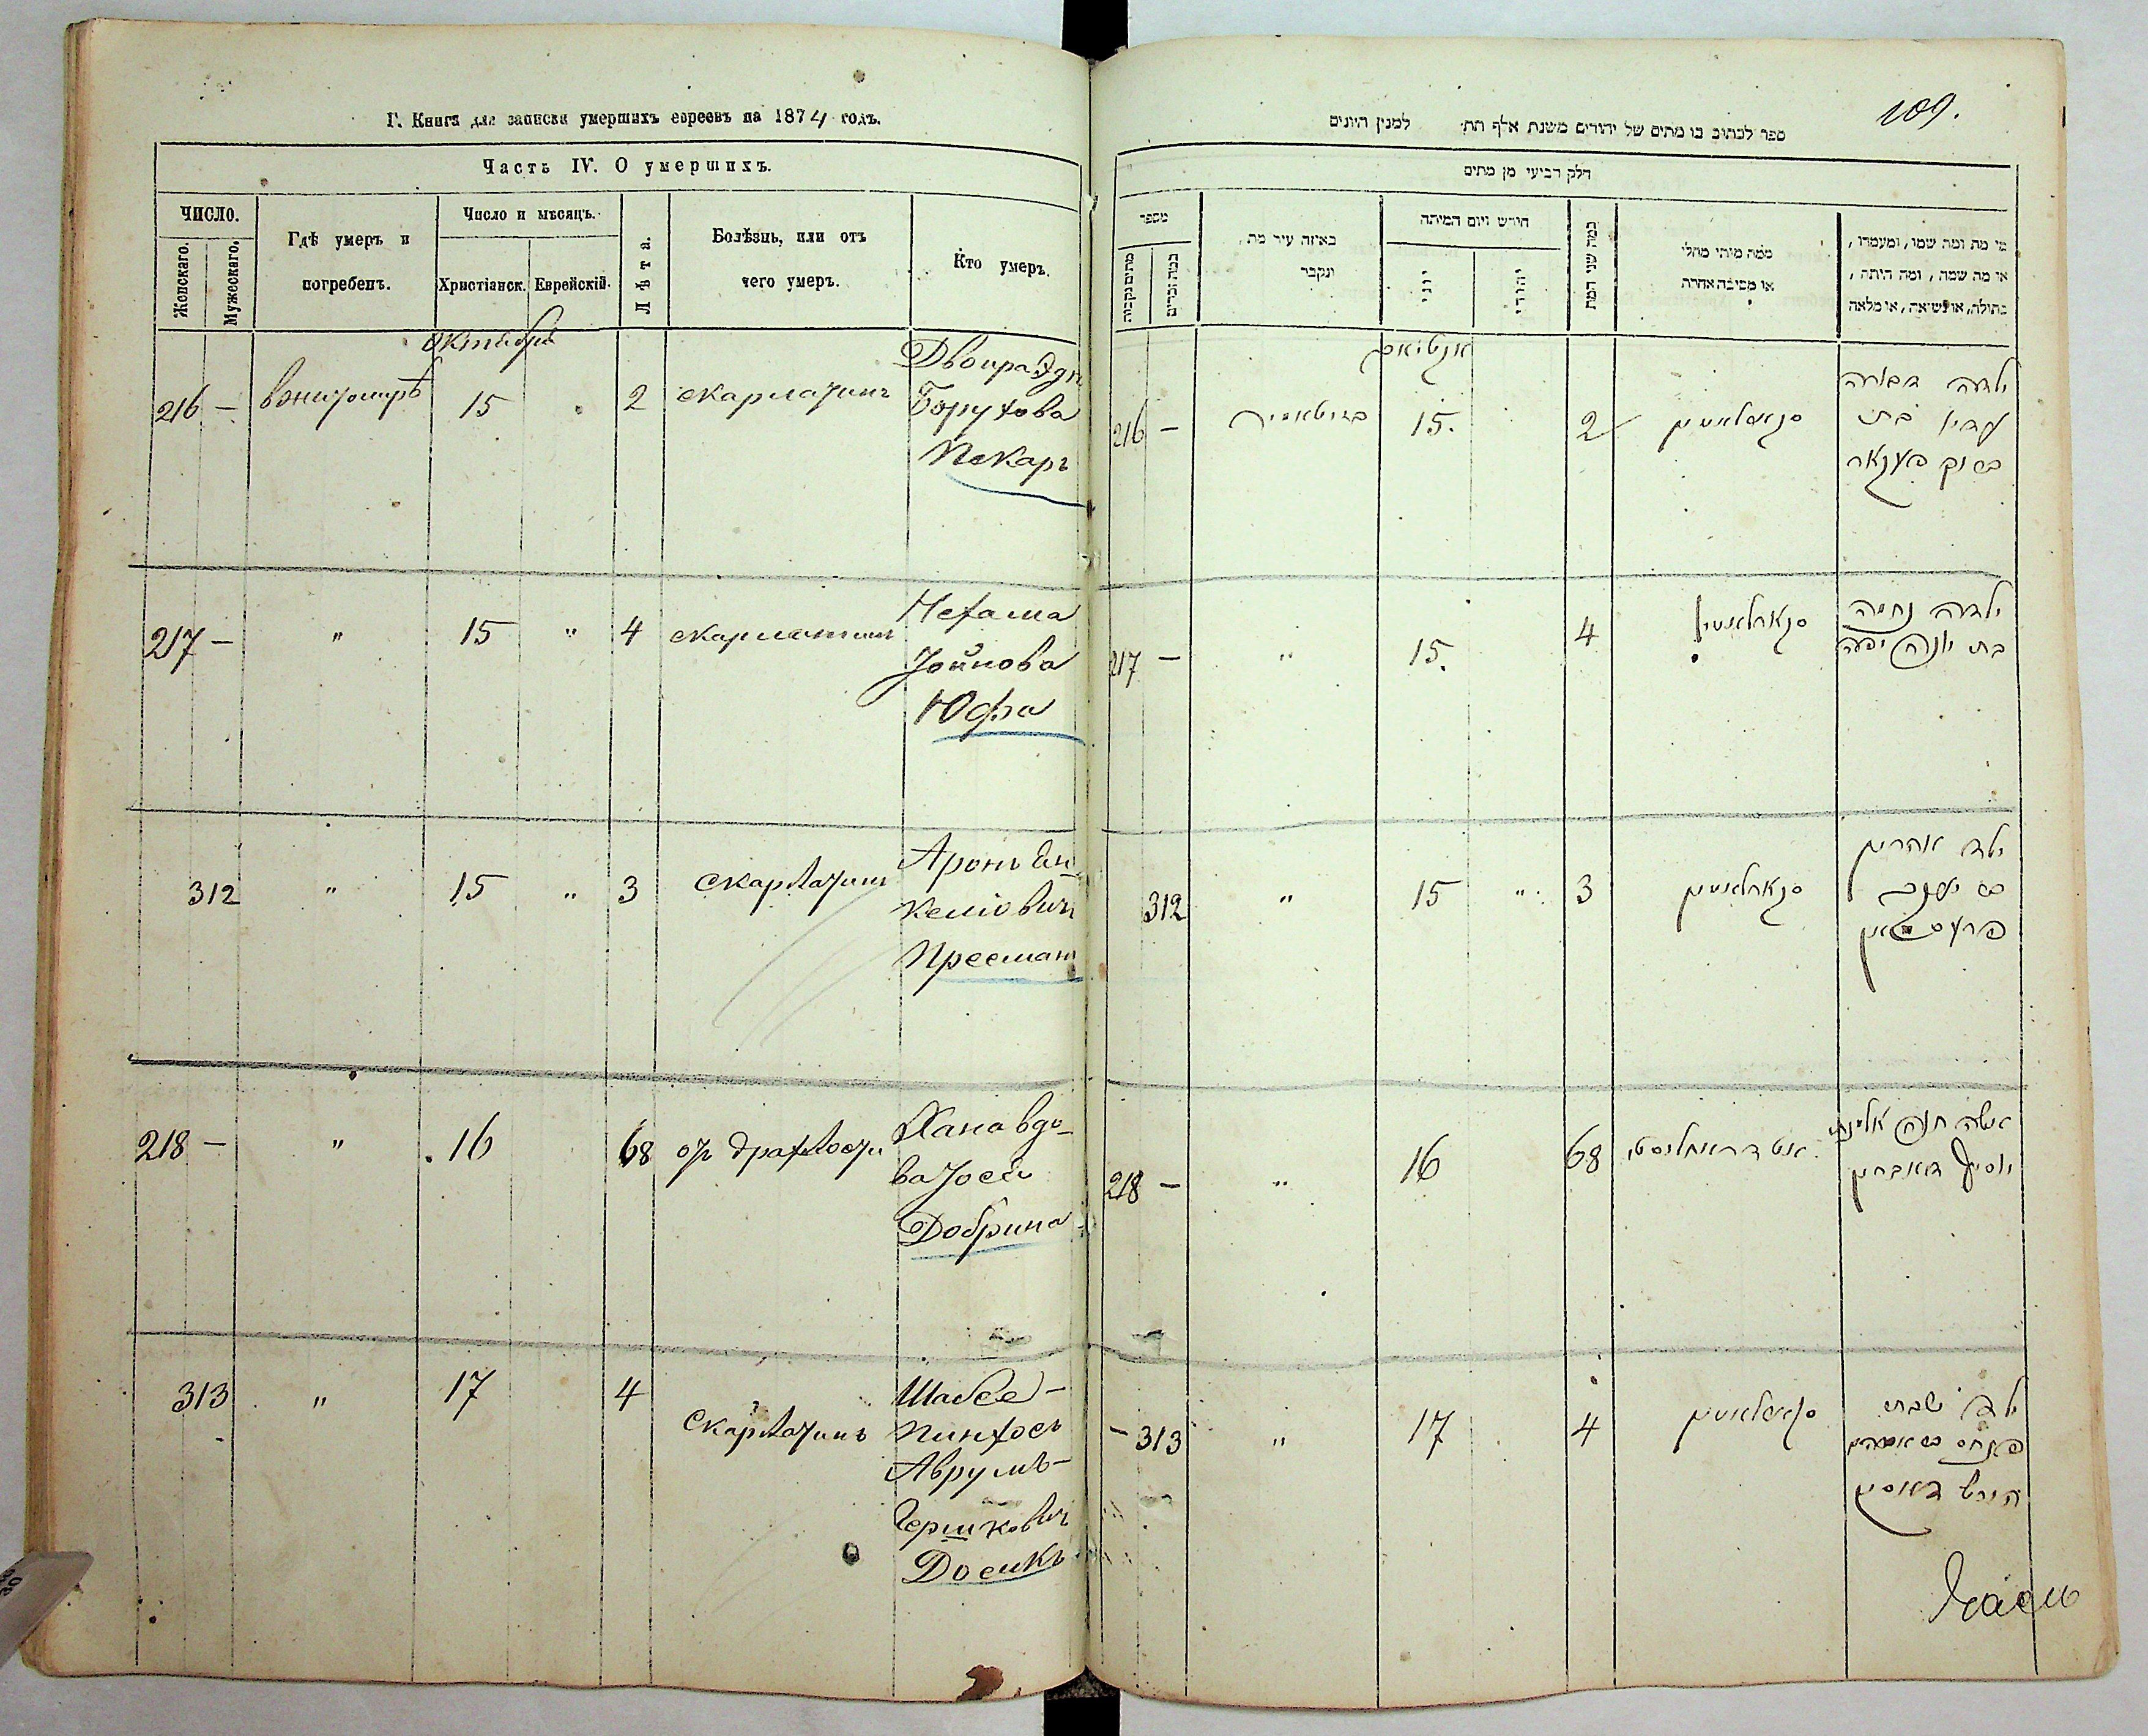 Г. Книга для записки умершихъ евреевъ на 1874 годъ.
Часть IV. О умершихъ.
ЧИСЛО.
Женскаго.
Мужескаго.
Гдѣ умеръ и
погребенъ.
Число и мѣсяцъ.
Христіанск.
Еврейскій.
Лѣта.
Болѣзнь, или отъ
чего умеръ.
Кто умеръ.
октября
216 — вжитомирѣ 15 2 скарлатинъ Двойра Эдя
Борухова
Пекаръ
217 — " 15 " 4 скарлатинъ Нехама
Іойнова
Юфа
312 " 15 " 3 скарлатинъ Аронъ Ян
келіовичъ
Пресманъ
218 — " 16 68 отъ драхлости Хана вдо-
ва Іосей
Добрина
313 " 17 4 скарлатинъ Шабсе-
Пинхосъ
Аврумъ-
Гершковичъ
Досикъ
109.
ספר לכתוב בו מתים של יהודים משנת אלף תת למנין היונים
חלק רביעי מן מתים
מספר
מתים נקבות
כמה זכרים
באיזה עיר מת
ונקבר
חודש ויום המיתה
יוני
יהודי
כמה שני המת
ממה מיתי מחלי
או מסיבה אחרת
מי מת ומה שמו, ומעמדו,
או מה שמה, ומה היתה,
בתולה, או נשואה, או מלאה
216 — 15. 2 סקארלאטין ילדה דבורה
בת
ברוך פעקאר
217 — " 15. 4 סקארלאטין ילדה נחמה
בת יונה יפה
312 " 15 " 3 סקארלאטין ילד אהרן
בר יעקב
פרעסמאן
218 — " 16 68 אט דראחליסטי אשה חנה אלמנת
יוסיף דאברין
— 313 " 17 4 סקארלאטין ילד שבתי
פנחס בר אברהם
הירש דאסיק